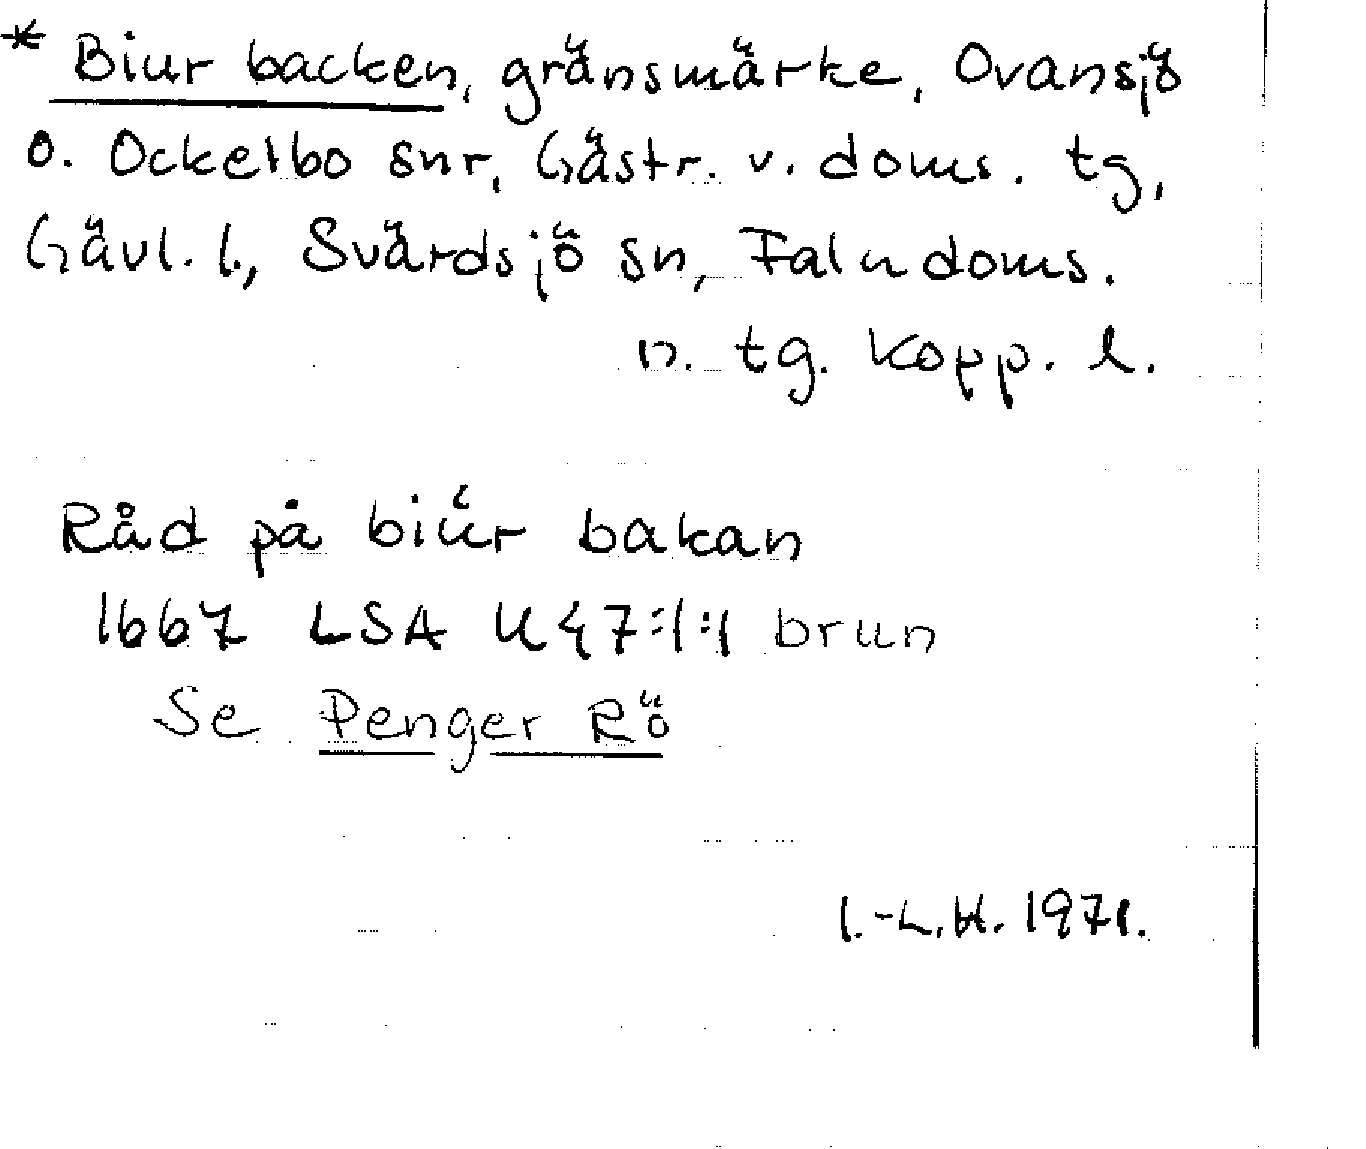 * Biur backen, gränsmärke, Ovansjö
o. Ockelbo snr, Gästr. v. doms. tg,
Gävl. l., Svärdsjö sn, Falu doms.
n. tg. Kopp. l.
Råd på biúr bakan
1667 LSA U47:1:1 brun
Se Penger Rö
I.-L.H. 1971.